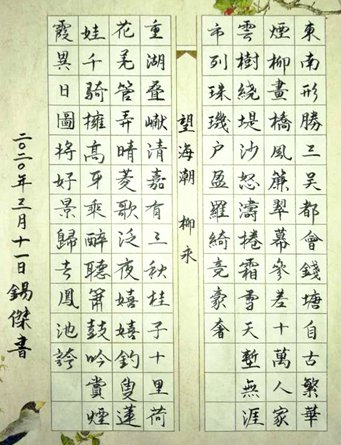 東南形勝三吳都會錢塘自古繁華
煙柳畫橋風簾翠幕參差十萬人家
雲樹繞堤沙怒濤捲霜雪天塹無涯
市列珠璣戶盈羅綺竞豪奢
望海潮 柳永
重湖叠巘清嘉有三秋桂子十里荷
花羌管弄晴菱歌泛夜嬉嬉釣叟蓮
娃千騎擁高牙乘醉聽簫鼓吟賞煙
霞異日圖將好景歸去鳳池誇
二〇二〇年三月十一日錫傑書